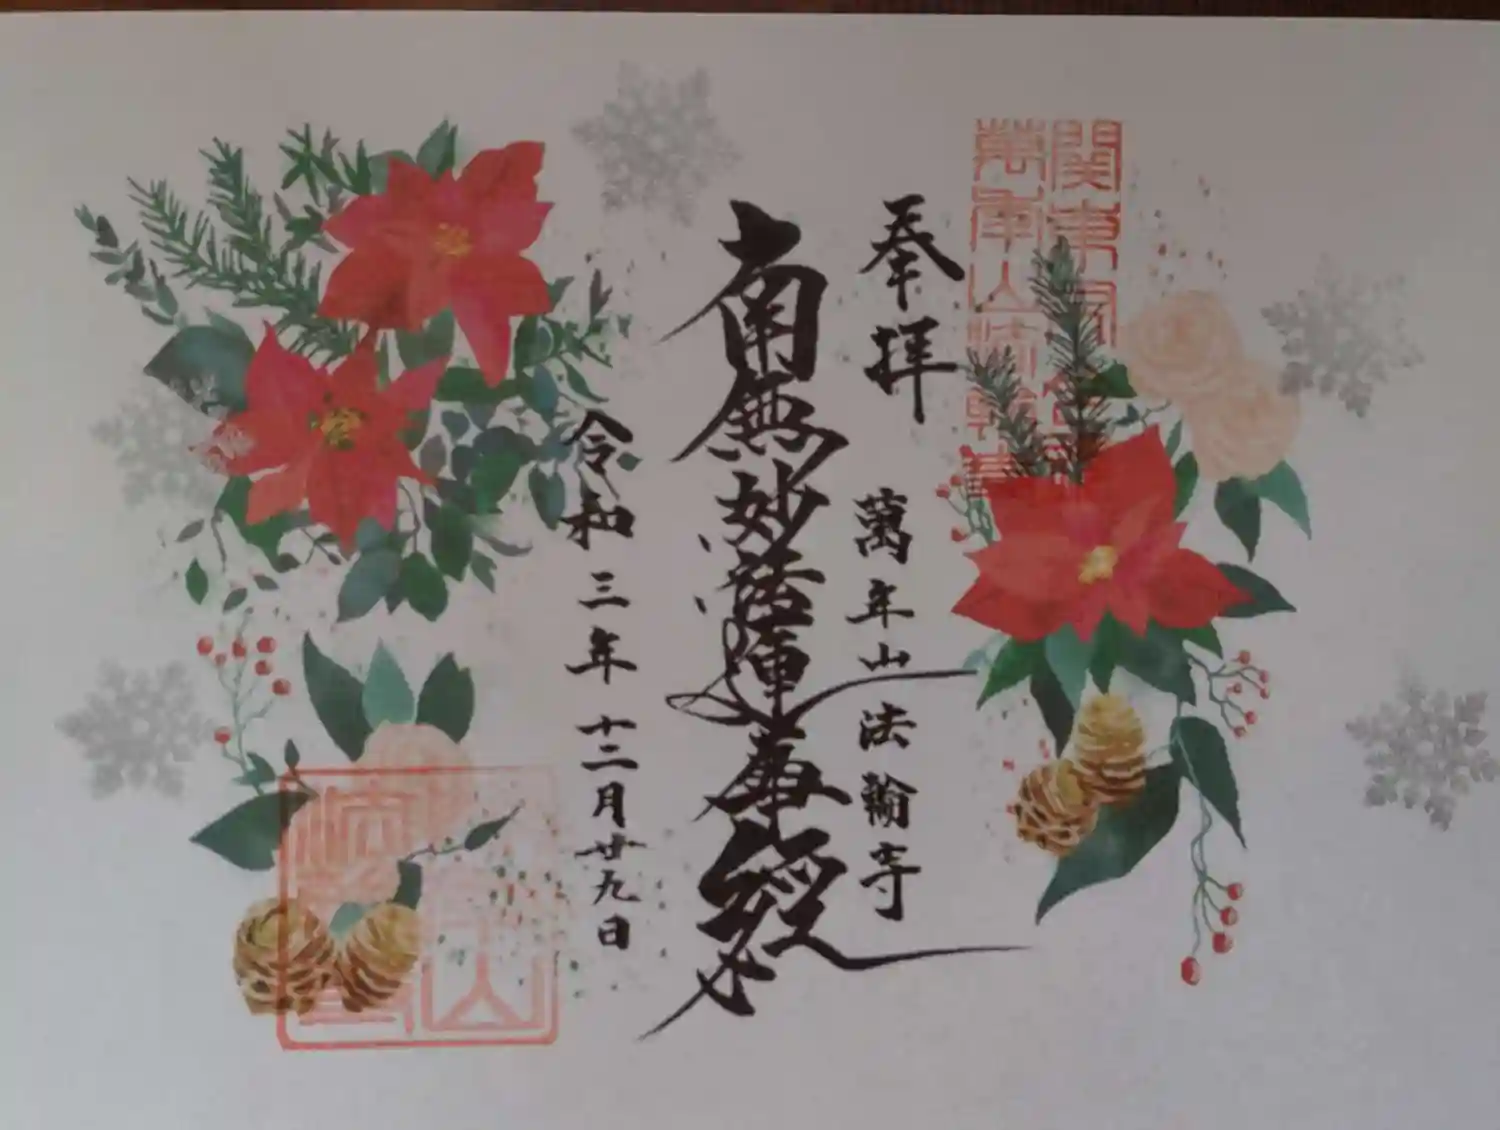 奉拝
萬年山法輪寺
南無妙法蓮華経
令和三年十二月廿九日